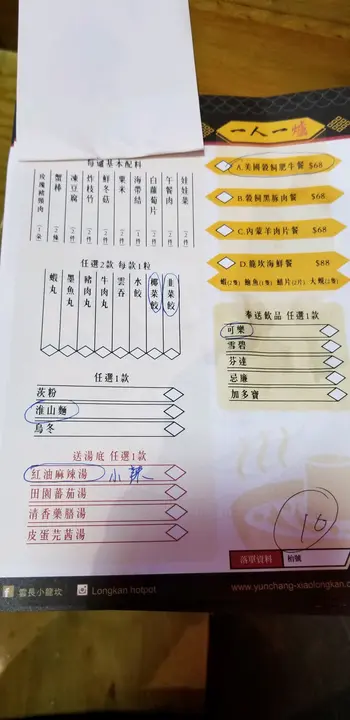 一人一爐
每爐基本配料
娃娃菜
午餐肉
白蘿蔔片
海帶結
粟米
鮮冬菇
炸枝竹
凍豆腐
蟹棒
玫瑰豬頸肉
A.美國穀飼肥牛餐 $68
B.穀飼黑豚肉餐 $68
C.內蒙羊肉片餐 $68
D.龍坎海鮮餐 $88
蝦(2隻) 鮑魚(1隻) 鯖片(2片) 大蜆(2隻)
任選2款 每款1粒
韭菜餃
椰菜餃
水餃
雲吞
牛肉丸
豬肉丸
墨魚丸
蝦丸
奉送飲品 任選1款
可樂
雪碧
芬達
忌廉
加多寶
任選1款
茨粉
淮山麵
烏冬
送湯底 任選1款
紅油麻辣湯 小辣
田園蕃茄湯
清香藥膳湯
皮蛋芫茜湯
10
落單資料 枱號
雲長小龍坎 Longkan hotpot www.yunchang-xiaolongkan.co